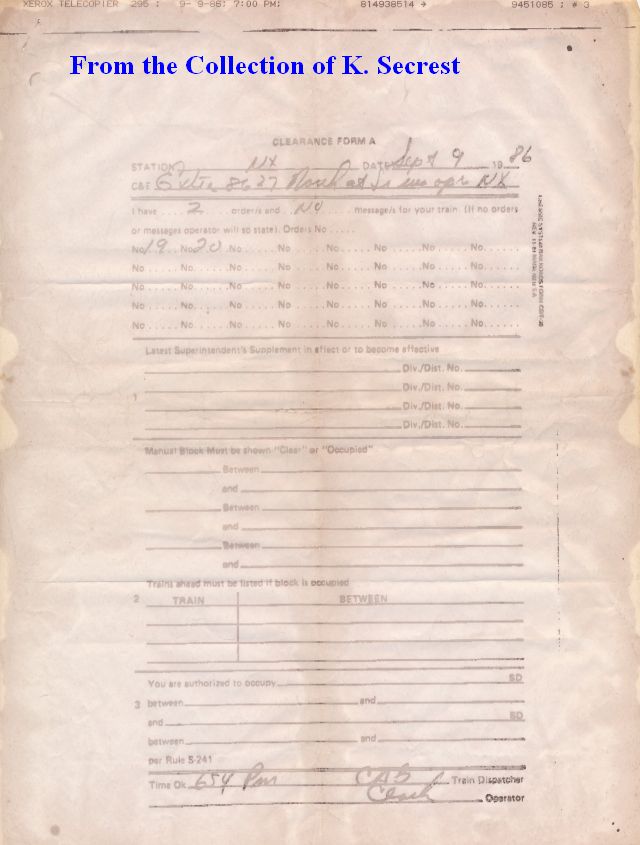 XEROX TELECOPIER 295 ; 9- 9-86; 7:00 PM; 814938514 → 9451085 ; # 3
From the Collection of K. Secrest
CLEARANCE FORM A
STATION NX DATE Sept 9 19 86
C&E Extra 8627 North at opr NX
I have .... 2 .... order/s and .. No .... message/s for your train. (If no orders
or messages operator will so state). Orders No .....
No 19 .. No 20 . No ..... No ..... No ..... No ..... No ..... No ......
No ..... No ..... No ..... No ..... No ..... No ..... No ..... No ......
No ..... No ..... No ..... No ..... No ..... No ..... No ..... No ......
No ..... No ..... No ..... No ..... No ..... No ..... No ..... No ......
No ..... No ..... No ..... No ..... No ..... No ..... No ..... No ......
Latest Superintendent's Supplement in effect or to become effective
Div./Dist. No.
Div./Dist. No.
1
Div./Dist. No.
Div./Dist. No.
Manual Block Must be shown "Clear" or "Occupied"
Between
and
Between
and
Between
and
Trains ahead must be listed if block is occupied
2 TRAIN BETWEEN
You are authorized to occupy SD
3 between and
and SD
between and
per Rule S-241
Time Ok 654 Pm CAS Train Dispatcher
Clark Operator